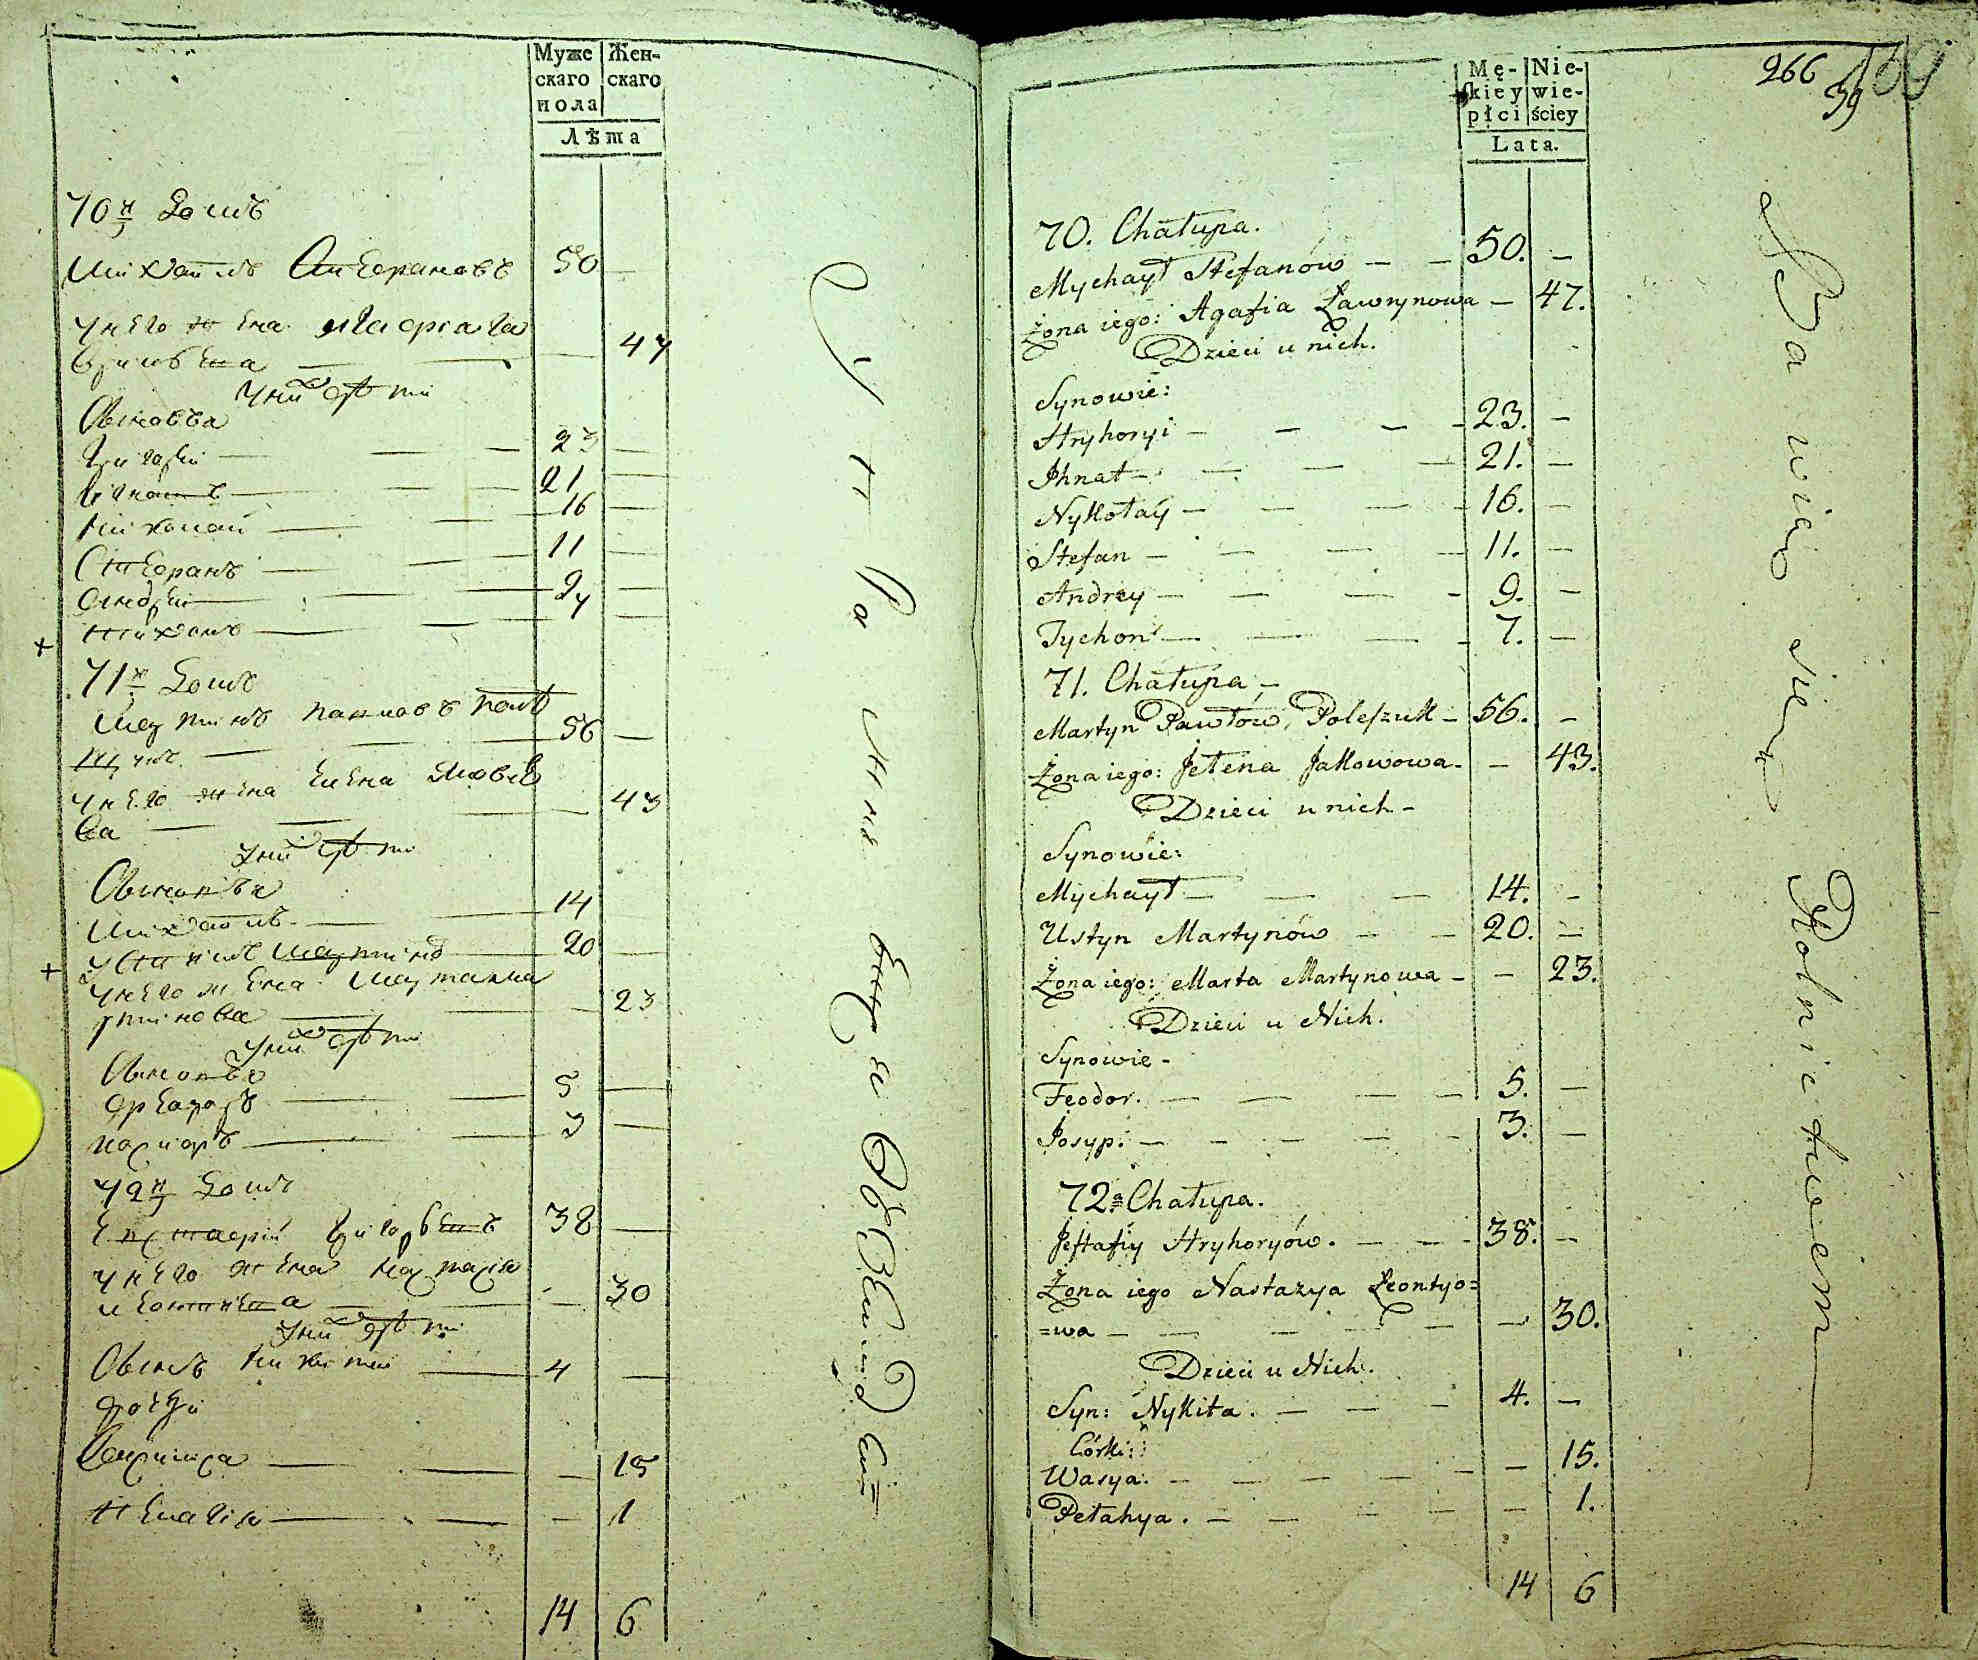 Муже
скаго
пола
Жен-
скаго
Лѣта
70й Домъ
Михайлъ Стефановъ 50 —
У него жена Агафіа Ла
вриновна — 47
У них дѣти
Сыновья
Григорій — 23 —
Игнатъ — 21 —
Николай — 16 —
Стефанъ — 11 —
Андрей — 9 —
Тихонъ — 7 —
71й Домъ
Мартинъ Павловъ Поле
щукъ — 56 —
У него жена Елена Яковле
ва — 43
У них дѣти
Сыновья
Михайлъ — 14 —
Устинъ Мартиновъ — 20 —
У него жена Марта Ма
ртинова — 23
У них дѣти
Сыновья
Феодоръ — 5 —
Иосифъ — 3 —
72й Домъ
Евстафій Григорьевъ 38 —
У него жена Настасія
Леонтіева — 30
У них дѣти
Сынъ Никита — 4 —
Дочери
Васса — 15
Пелагія — 1
14 6
Упражняются въ
266
39
Mę-
skiey
płci
Nie-
wie-
ściey
Lata.
70. Chałupa.
Mychaył Stefanów — — 50. —
Żona iego: Agafia Ławrynowa — 47.
Dzieci u nich.
Synowie:
Hryhoryi — — — 23. —
Ihnat — — — — 21. —
Nykołay — — — — 16. —
Stefan — — — — 11. —
Andrey — — — — 9. —
Tychon — — — 7. —
71. Chałupa —
Martyn Pawłów, Poleszuk — 56. —
Żona iego: Jełena Jakowowa. — 43.
Dzieci u nich —
Synowie:
Mychaył — — — 14. —
Ustyn Martynów — — 20. —
Żona iego: Marta Martynowa — — 23.
Dzieci u Nich.
Synowie —
Feodor. — — — — 5. —
Josyp. — — — — — 3. —
72a Chałupa.
Jeftafiy Hryhoryów. — — — 38. —
Żona iego Nastazya Leontyo=
=wa — — — — — — 30.
Dzieci u Nich.
Syn: Nykita. — — — 4. —
Córki:
Wasya. — — — — — — 15.
Pełahya. — — — — — 1.
14 6
Bawią się Rolnictwem